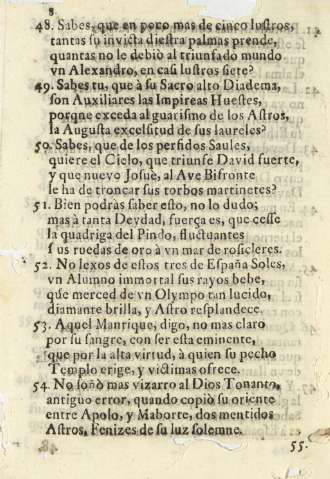 8.
48. Sabes, que en poco mas de cinco lustros,
tantas su invicta diestra palmas prende,
quantas no le debiò al triunfado mundo
vn Alexandro, en casi lustros siete?
49. Sabes tu, que à su Sacro alto Diadema,
son Auxiliares las Impireas Huestes,
porque exceda al guarismo de los Astros,
la Augusta excelsitud de sus laureles?
50. Sabes, que de los perfidos Saules,
quiere el Cielo, que triunfe David fuerte,
y que nuevo Josuè, al Ave Bifronte
le ha de troncar sus torbos martinetes?
51. Bien podràs saber esto, no lo dudo;
mas à tanta Deydad, fuerça es, que cesse
la quadriga del Pindo, fluctuantes
sus ruedas de oro à vn mar de rosicleres.
52. No lexos de estos tres de España Soles,
vn Alumno immortal sus rayos bebe,
què merced de vn Olympo tan lucido,
diamante brilla, y Astro resplandece.
53. Aquel Manrique, digo, no mas claro
por su sangre, con ser esta eminente,
que por la alta virtud, à quien su pecho
Templo erige, y victimas ofrece.
54. No soñò mas vizarro al Dios Tonante,
antiguo error, quando copiò su oriente
entre Apolo, y Maborte, dos mentidos
Astros, Fenizes de su luz solemne.
55.